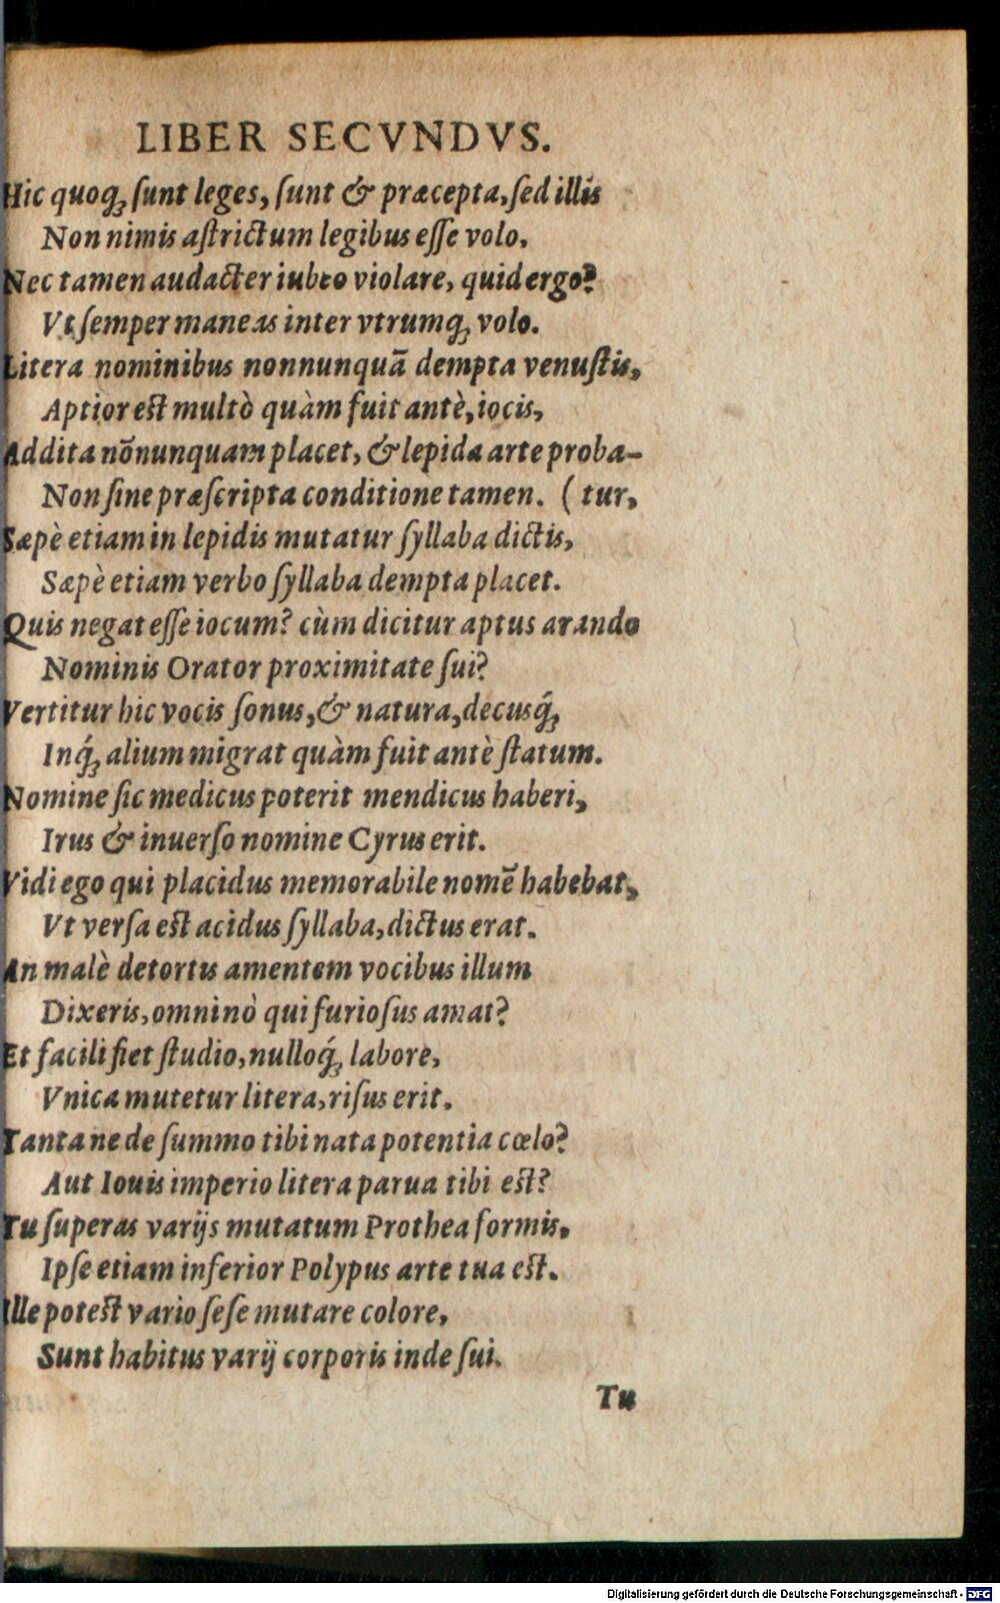 LIBER SECVNDVS.
Hic quoqꝫ ſunt leges, ſunt & præcepta, ſed illis
Non nimis aſtrictum legibus eſſe volo.
Nec tamen audacter iubeo violare, quid ergo?
Vt ſemper maneas inter vtrumqꝫ volo.
Litera nominibus nonnunquā dempta venuſtis,
Aptior eſt multò quàm fuit antè, iocis,
Addita nōnunquam placet, & lepida arte proba-
Non ſine præſcripta conditione tamen. ( tur,
Sæpè etiam in lepidis mutatur ſyllaba dictis,
Sæpè etiam verbo ſyllaba dempta placet.
Quis negat eſſe iocum? cùm dicitur aptus arando
Nominis Orator proximitate ſui?
Vertitur hic vocis ſonus, & natura, decusq́ꝫ
Inq́ꝫ alium migrat quàm fuit antè ſtatum.
Nomine ſic medicus poterit mendicus haberi,
Irus & inuerſo nomine Cyrus erit.
Vidi ego qui placidus memorabile nomē habebat,
Vt verſa eſt acidus ſyllaba, dictus erat.
An malè detortis amentem vocibus illum
Dixeris, omninò qui furioſus amat?
Et facili fiet ſtudio, nulloq́ꝫ labore,
Vnica mutetur litera, riſus erit.
Tanta ne de ſummo tibi nata potentia cœlo?
Aut Iouis imperio litera parua tibi eſt?
Tu ſuperas varijs mutatum Prothea formis,
Ipſe etiam inferior Polypus arte tua eſt.
Ille poteſt vario ſeſe mutare colore,
Sunt habitus varij corporis inde ſui.
Tu
Digitalisierung gefördert durch die Deutsche Forschungsgemeinschaft - DFG